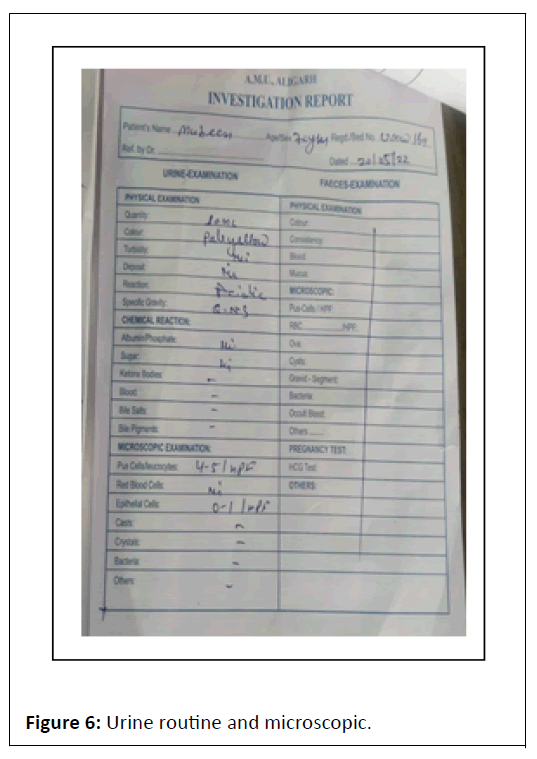 A.M.U., ALIGARH
INVESTIGATION REPORT
Patient's Name Mubeen Age/Sex Regd./Bed No.
Ref. by Dr. Dated
URINE-EXAMINATION FAECES-EXAMINATION
PHYSICAL EXAMINATION PHYSICAL EXAMINATION
Quantity: Colour:
Colour: Pale yellow Consistency:
Turbidity: Nil Blood:
Deposit: Nil Mucus:
Reaction: Acidic MICROSCOPIC:
Specific Gravity: Q.N.S Pus-Cells / HPF
CHEMICAL REACTION: RBC HPF:
Albumin/Phosphate: Nil Ova:
Sugar: Nil Cysts:
Ketone Bodies: -
Blood: - Bacteria:
Bile Salts: - Occult Blood:
Bile Pigments: - Others
MICROSCOPIC EXAMINATION: PREGNANCY TEST:
Pus Cells/leucocytes: 4-5/HPF HCG Test:
Red Blood Cells: Nil OTHERS:
Epithelial Cells: 0-1/HPF
Casts: -
Crystals: -
Bacteria: -
Others: -
Figure 6: Urine routine and microscopic.